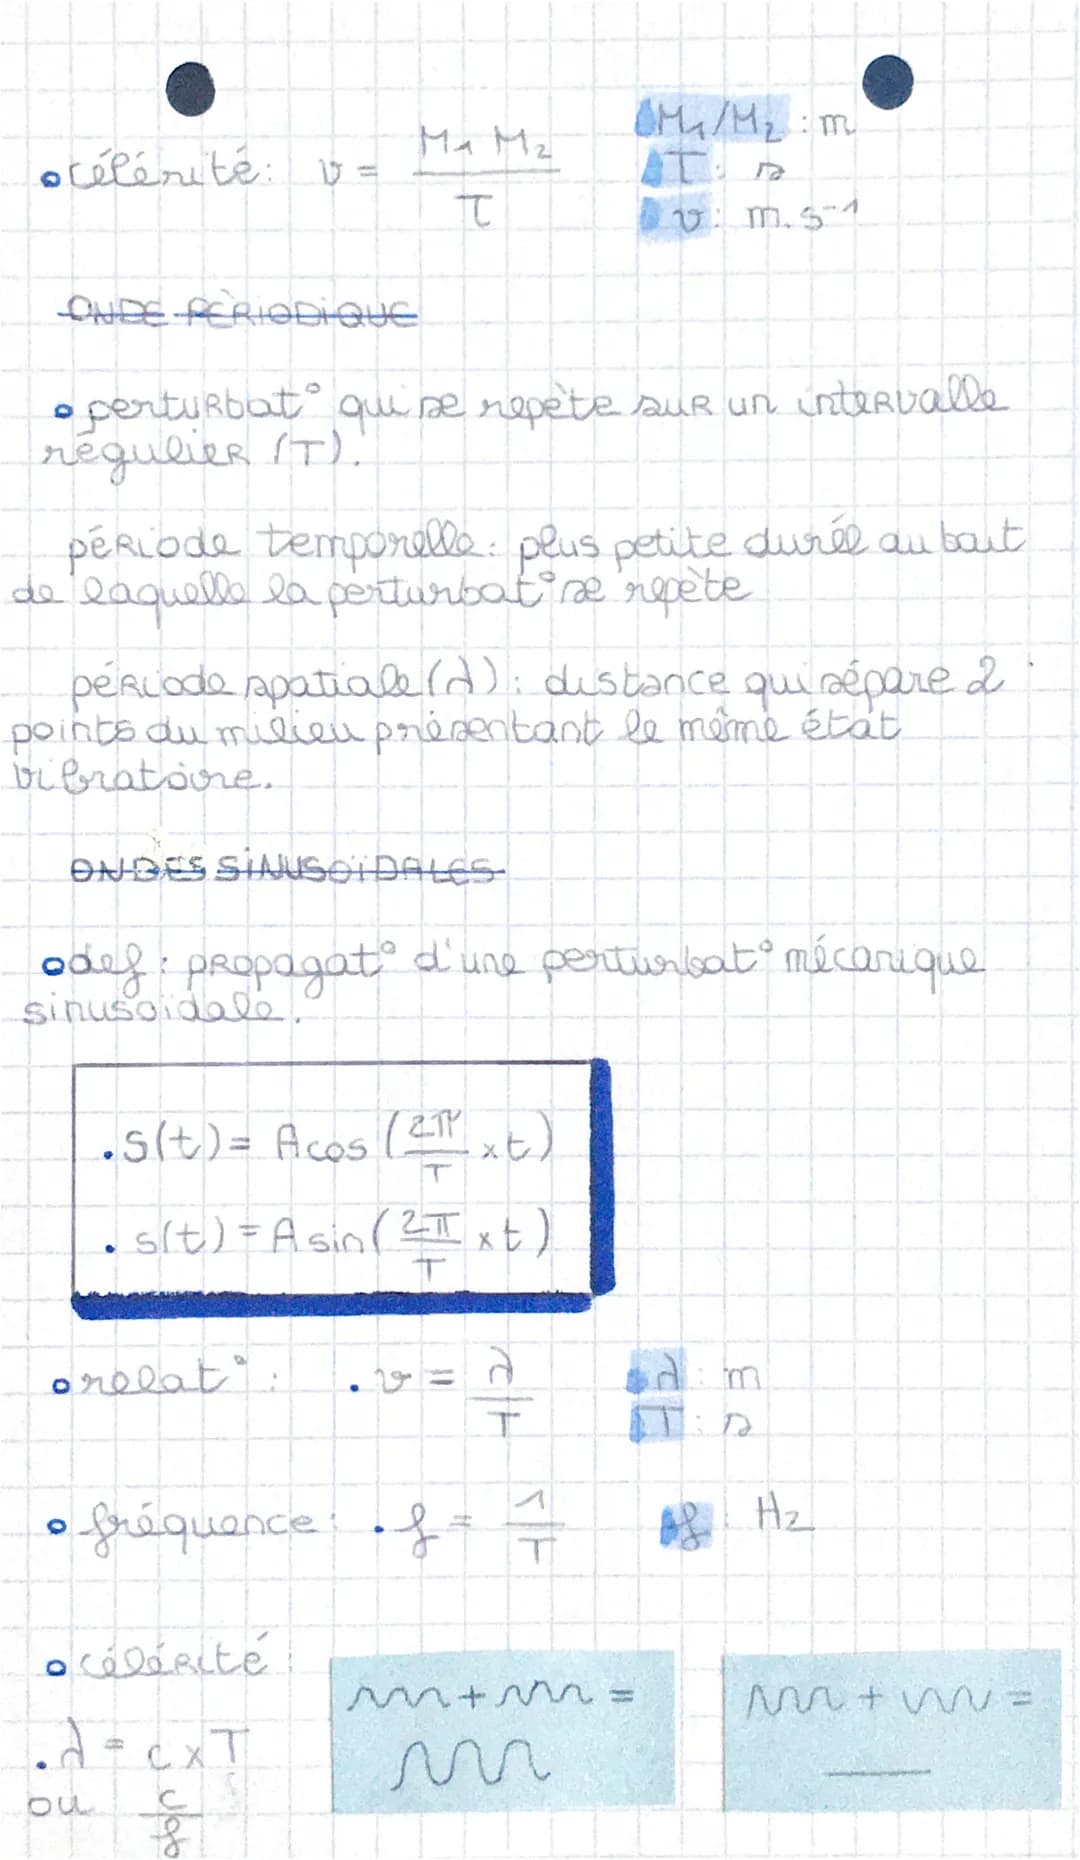 célérité: v = M₁ M₂ / τ
M₁/M₂ : m
T : s
v : m.s⁻¹
ONDE PÈRIODiQUE
perturbat° qui se repète sur un intervalle
régulier (T).
période temporelle : plus petite durée au bout
de laquelle la perturbat° se repète
période spatiale (λ) : distance qui sépare 2
points du milieu présentant le même état
vibratoire.
ONDES SiNUSOïDALES
def : propagat° d'une perturbat° mécanique
sinusoïdale.
. s(t) = A cos (2π/T × t)
. s(t) = A sin (2π/T × t)
relat° : . v = λ/T
λ : m
T : s
fréquence : . f = 1/T
f : Hz
célérité :
. λ = c × T
ou c/f
+ =
+ =